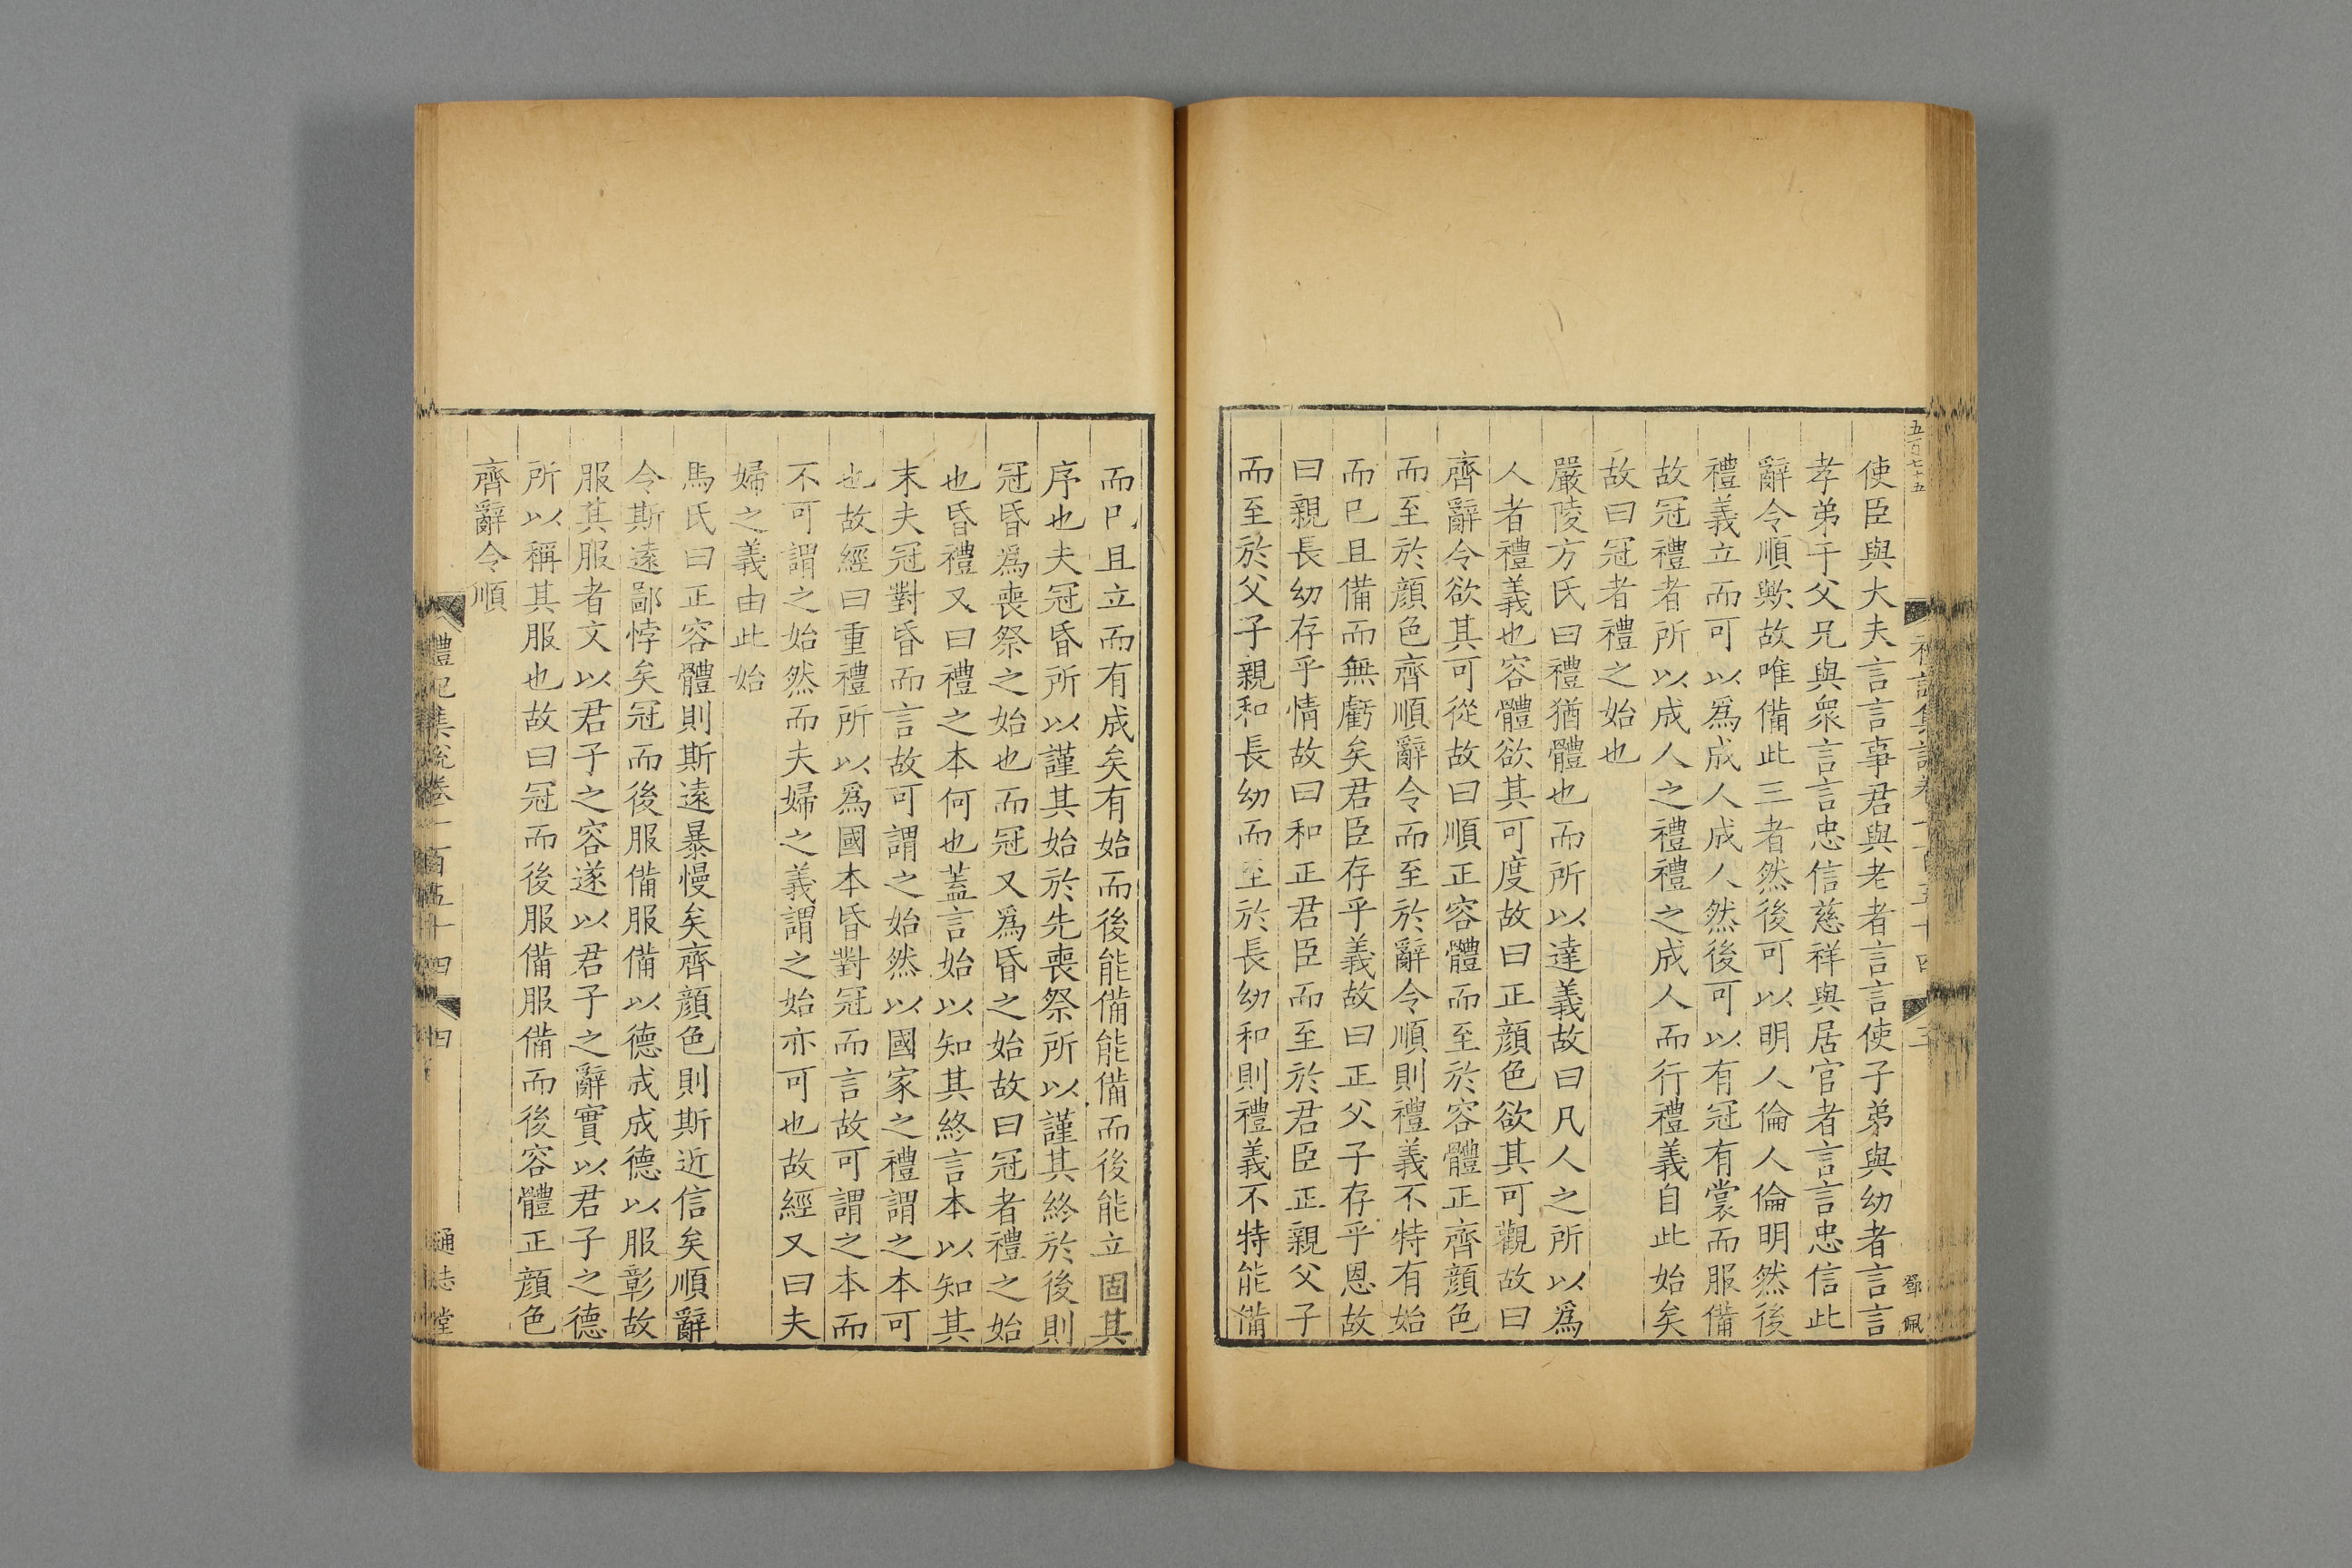 五百七十五
禮記集說卷一百五十四
三
鄧佩
使臣與大夫言言事君與老者言言使子弟與幼者言言
孝弟于父兄與衆言言忠信慈祥與居官者言言忠信此
辭令順歟故唯備此三者然後可以明人倫人倫明然後
禮義立而可以爲成人成人然後可以有冠有裳而服備
故冠禮者所以成人之禮禮之成人而行禮義自此始矣
故曰冠者禮之始也
嚴陵方氏曰禮猶體也而所以達義故曰凡人之所以爲
人者禮義也容體欲其可度故曰正顔色欲其可觀故曰
齊辭令欲其可從故曰順正容體而至於容體正齊顔色
而至於顔色齊順辭令而至於辭令順則禮義不特有始
而已且備而無虧矣君臣存乎義故曰正父子存乎恩故
曰親長幼存乎情故曰和正君臣而至於君臣正親父子
而至於父子親和長幼而至於長幼和則禮義不特能備
而已且立而有成矣有始而後能備能備而後能立固其
序也夫冠昏所以謹其始於先喪祭所以謹其終於後則
冠昏爲喪祭之始也而冠又爲昏之始故曰冠者禮之始
也昏禮又曰禮之本何也蓋言始以知其終言本以知其
末夫冠對昏而言故可謂之始然以國家之禮謂之本可
也故經曰重禮所以爲國本昏對冠而言故可謂之本而
不可謂之始然而夫婦之義謂之始亦可也故經又曰夫
婦之義由此始
馬氏曰正容體則斯遠暴慢矣齊顔色則斯近信矣順辭
令斯遠鄙悖矣冠而後服備服備以德成成德以服彰故
服其服者文以君子之容遂以君子之辭實以君子之德
所以稱其服也故曰冠而後服備服備而後容體正顔色
齊辭令順
禮記集說卷一百五十四
四
通志堂